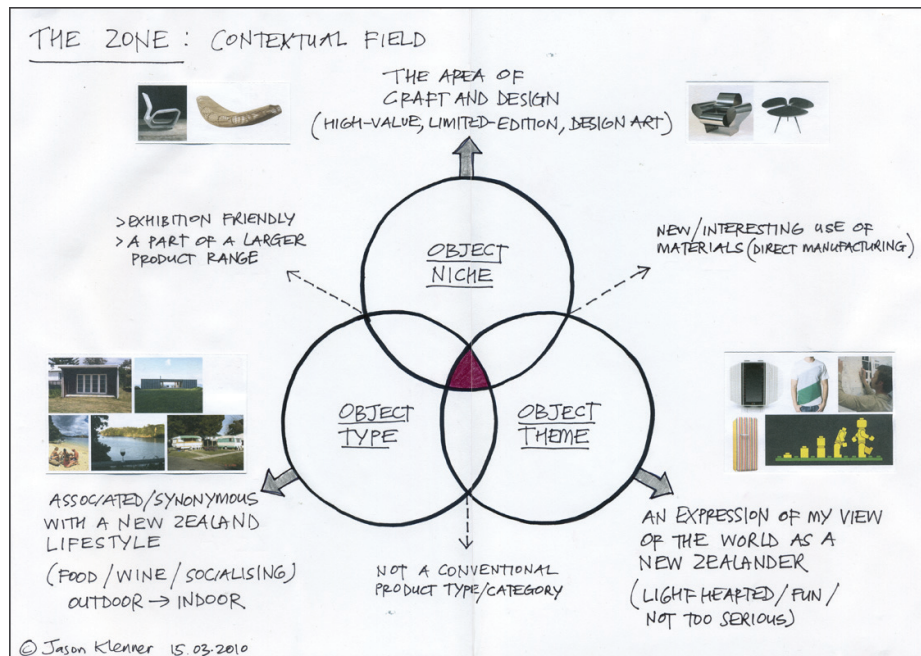 THE ZONE: CONTEXTUAL FIELD
THE AREA OF
CRAFT AND DESIGN
(HIGH-VALUE, LIMITED-EDITION, DESIGN ART)
>EXHIBITION FRIENDLY
>A PART OF A LARGER
PRODUCT RANGE
NEW/INTERESTING USE OF
MATERIALS (DIRECT MANUFACTURING)
OBJECT
NICHE
OBJECT
TYPE
OBJECT
THEME
ASSOCIATED/SYNONYMOUS
WITH A NEW ZEALAND
LIFESTYLE
(FOOD/WINE/SOCIALISING)
OUTDOOR → INDOOR
NOT A CONVENTIONAL
PRODUCT TYPE/CATEGORY
AN EXPRESSION OF MY VIEW
OF THE WORLD AS A
NEW ZEALANDER
(LIGHT HEARTED/FUN/
NOT TOO SERIOUS)
© Jason Klenner 15.03.2010